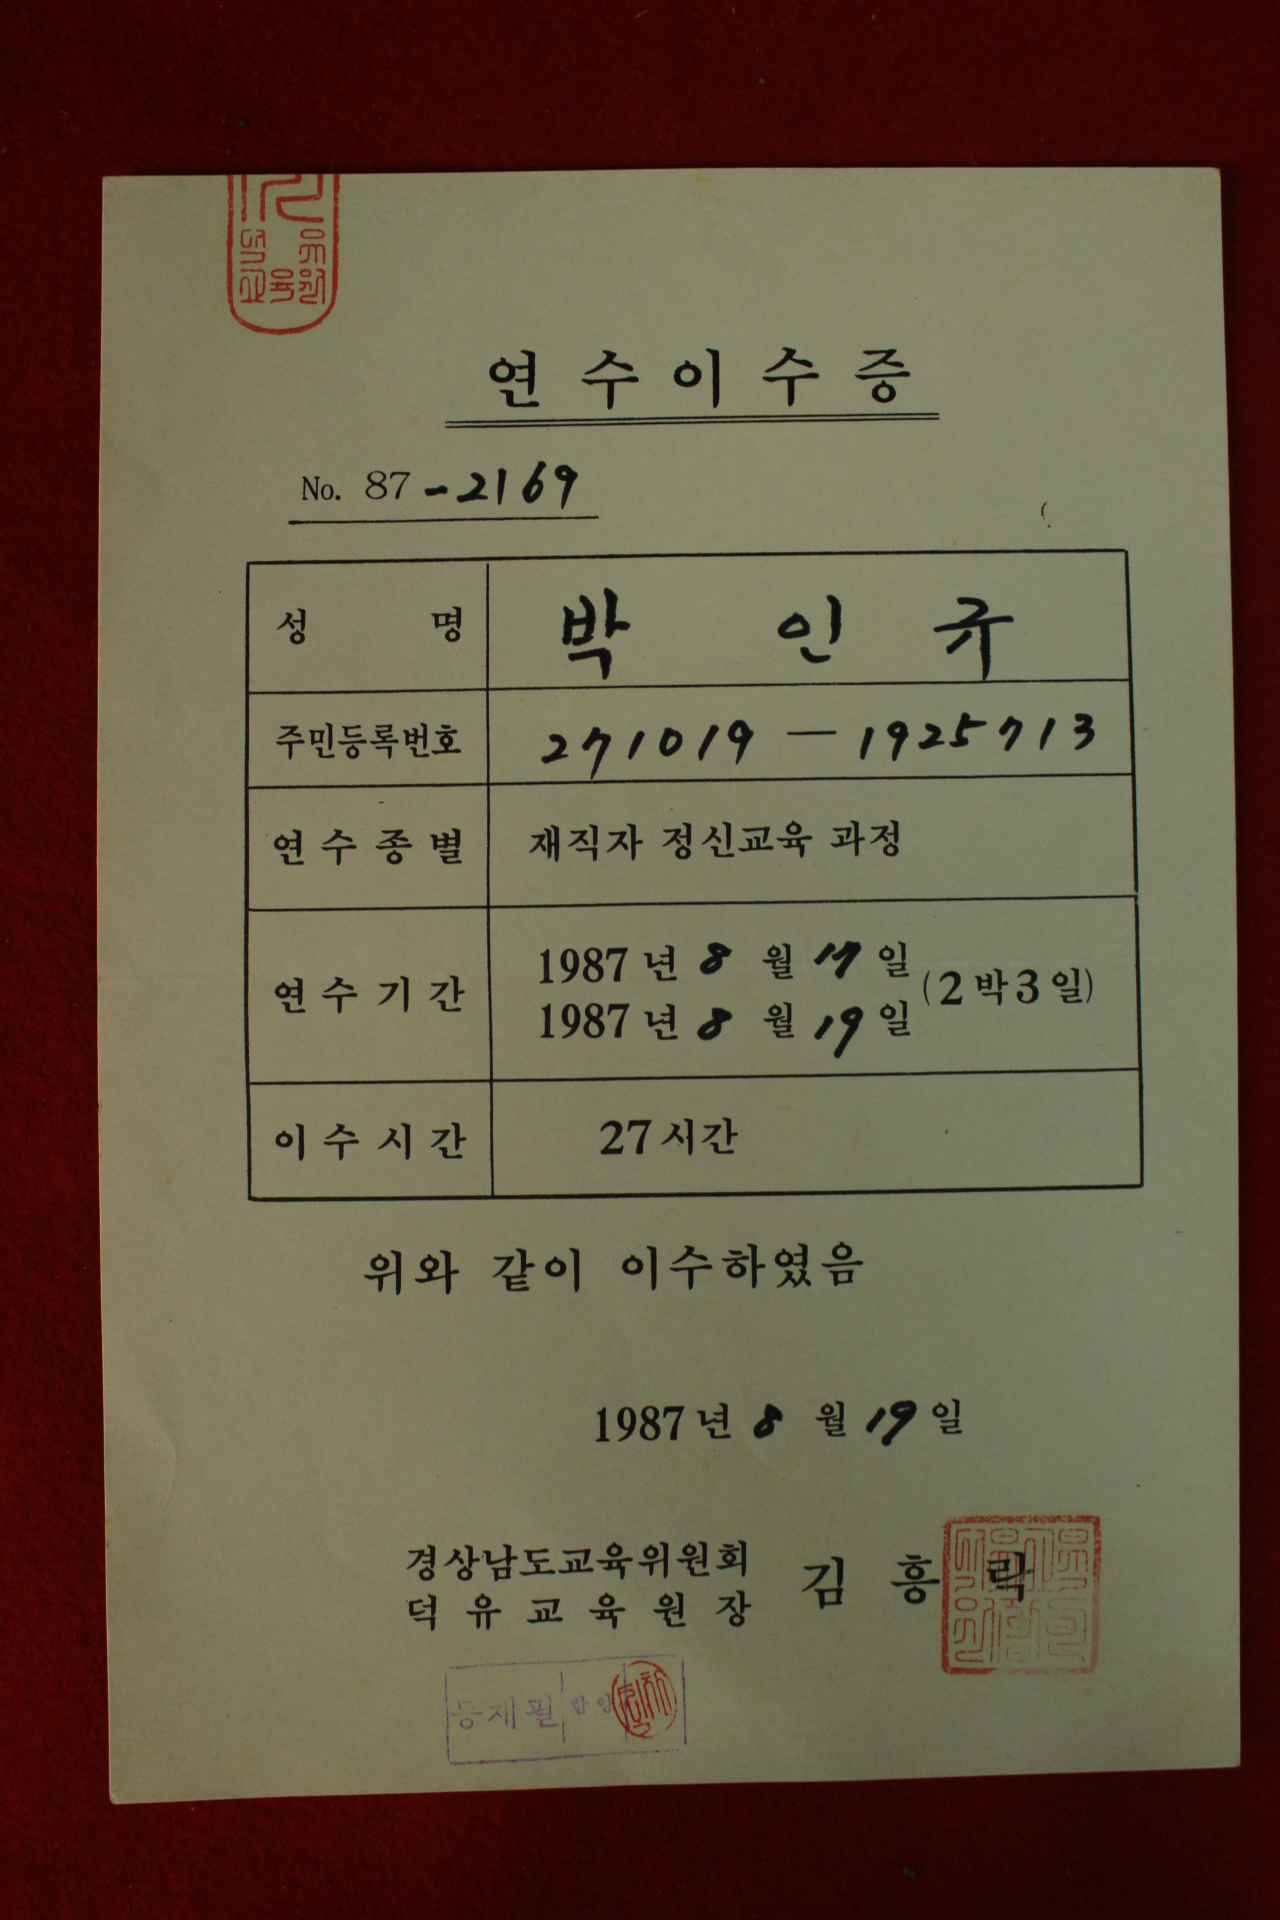 연수이수증
No. 87-2169
성 명 박 인 규
주민등록번호 271019 - 1925713
연수종별 재직자 정신교육 과정
연수기간 1987년 8월 17일
1987년 8월 19일 (2박3일)
이수시간 27시간
위와 같이 이수하였음
1987년 8월 19일
경상남도교육위원회
덕유교육원장 김흥락
등재필 함양